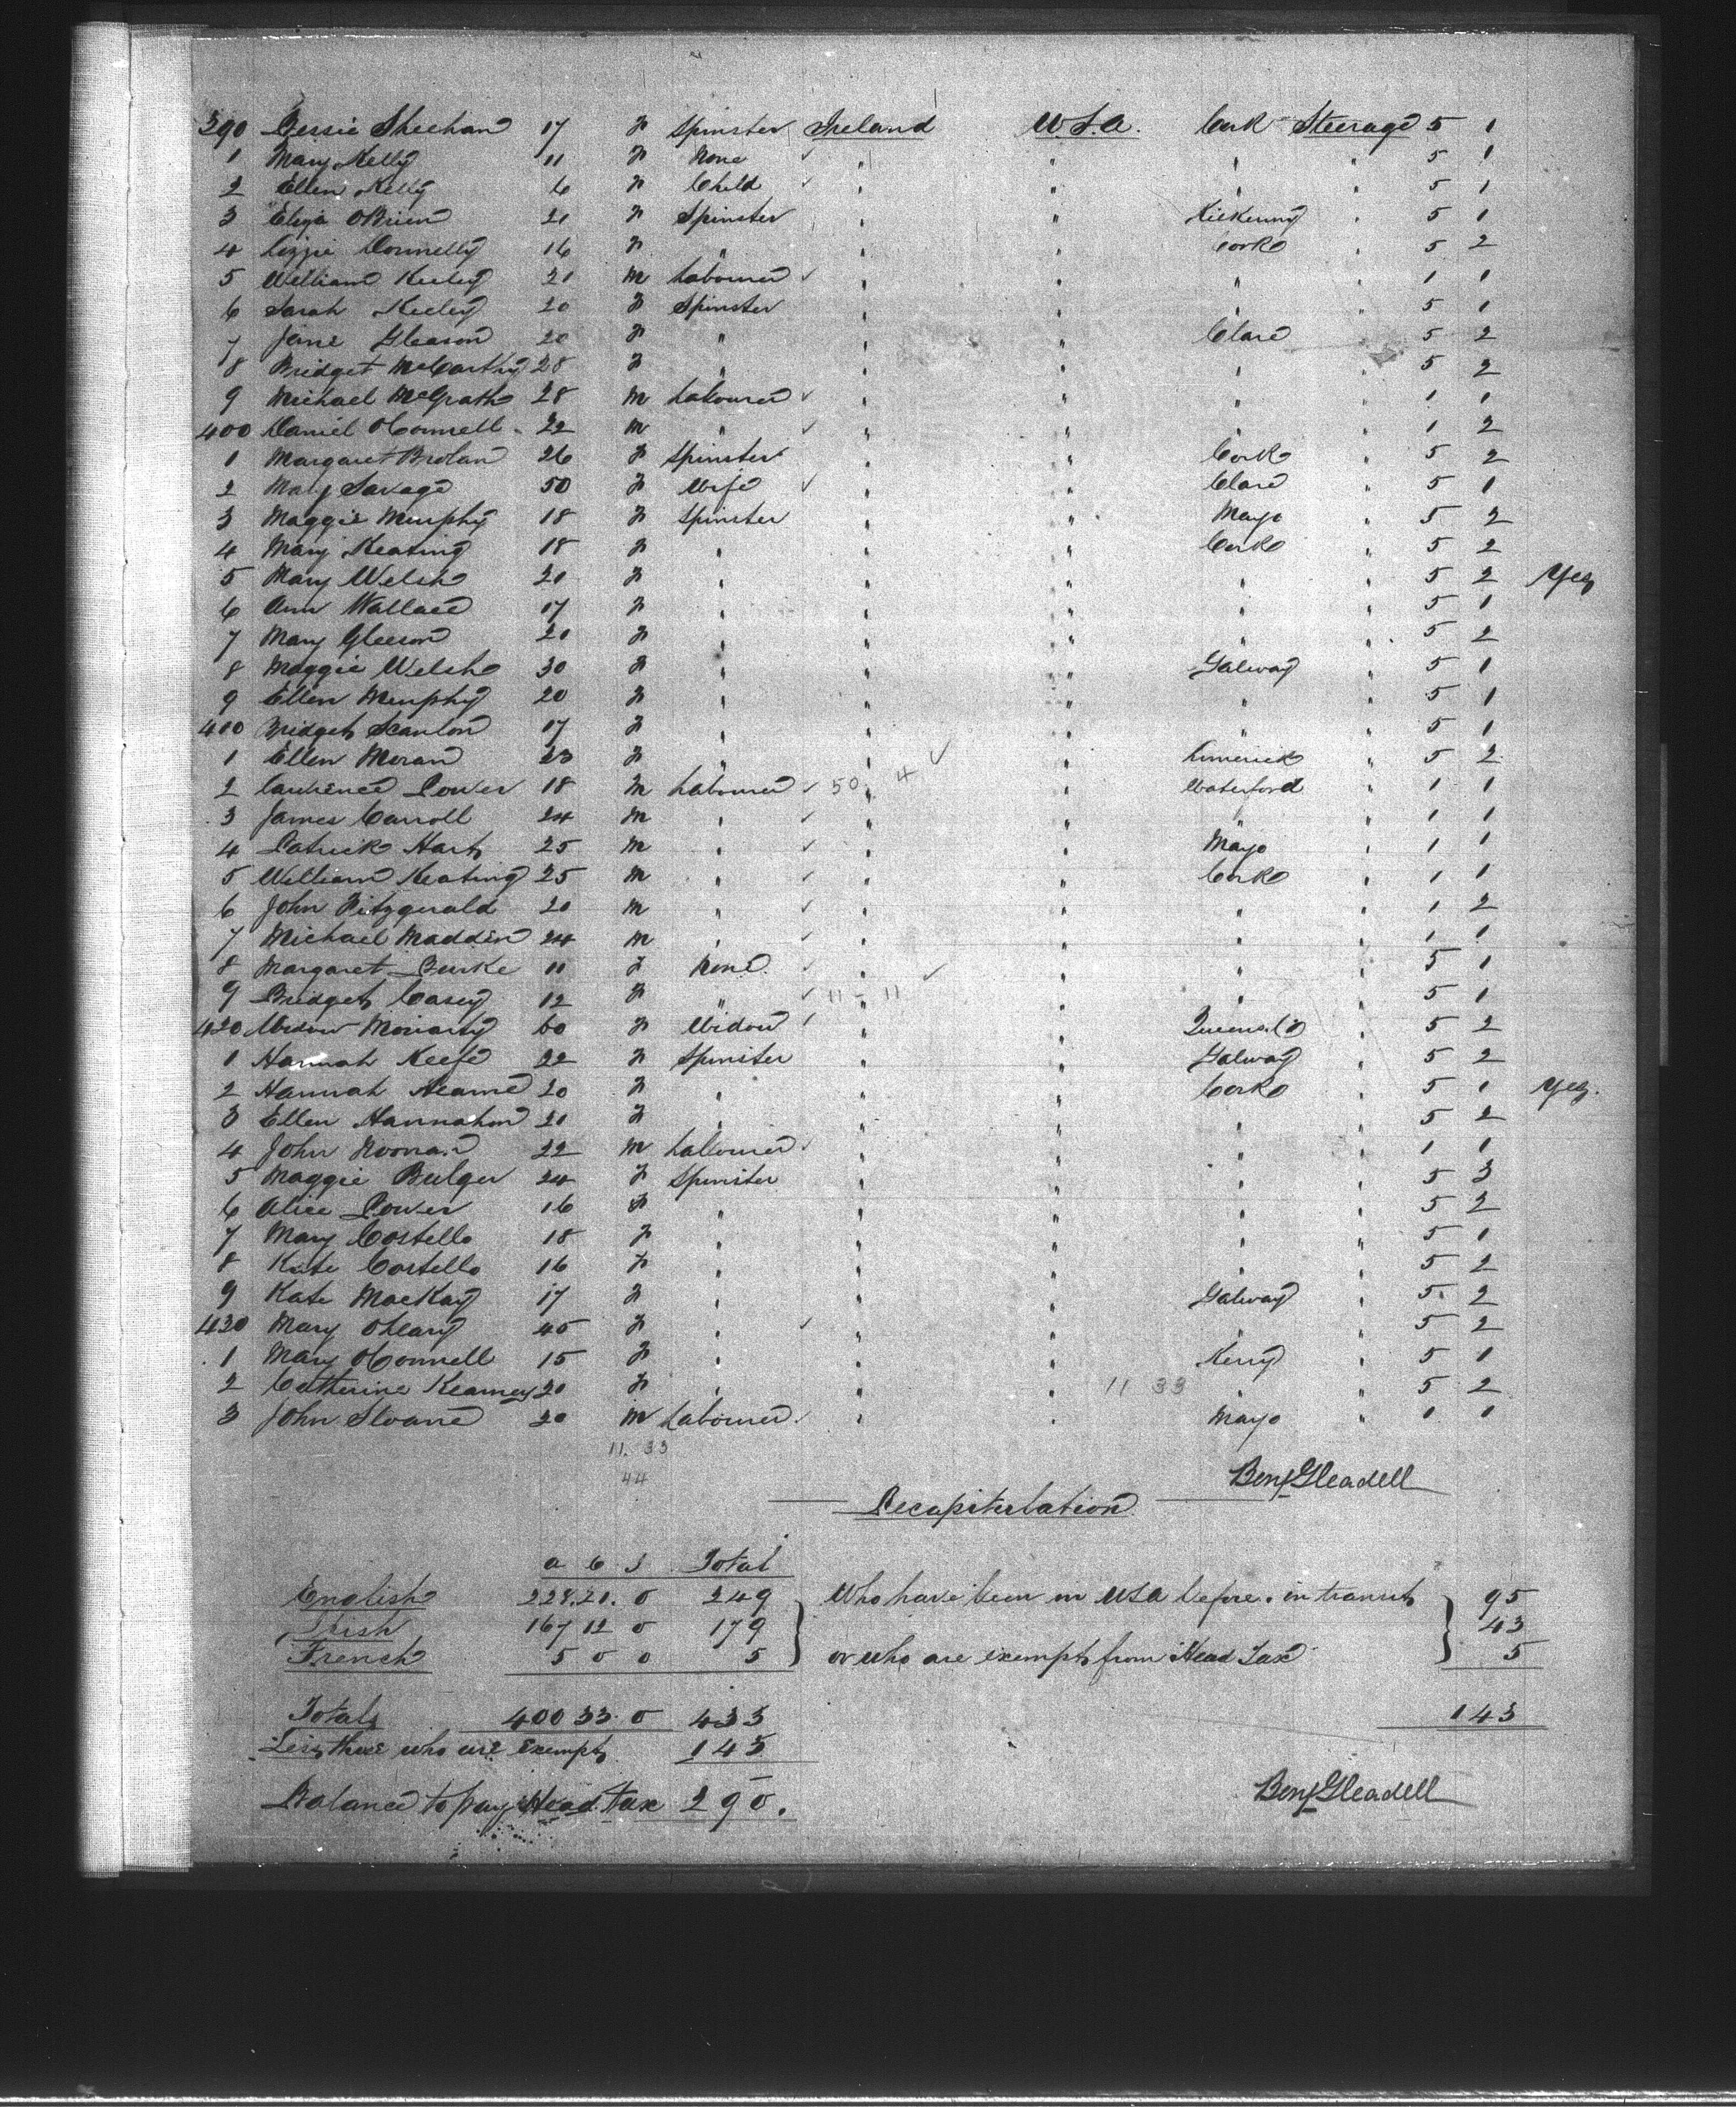 390 Bessie Sheehan 17 F Spinster Ireland U.S.A. Cork Steerage 5 1
1 Mary Kelly 11 F None ✓ " " " " 5 1
2 Ellen Kelly 6 F Child ✓ " " " " 5 1
3 Eliza OBrien 21 F Spinster " " Kilkenny " 5 1
4 Lizzie Donnelly 16 F " " " Cork " 5 2
5 William Keeley 21 M Labourer ✓ " " " " 1 1
6 Sarah Keeley 20 F Spinster " " " " 5 1
7 Jane Gleason 20 F " " " Clare " 5 2
8 Bridget McCarthy 28 F " " " " " 5 2
9 Michael McGrath 28 M Labourer ✓ " " " " 1 1
400 Daniel OConnell 22 M " ✓ " " " " 1 2
1 Margaret Brolan 26 F Spinster " " Cork " 5 2
2 Mary Savage 50 F Wife ✓ " " Clare " 5 1
3 Maggie Murphy 18 F Spinster " " Mayo " 5 2
4 Mary Keating 18 F " " " Cork " 5 2
5 Mary Welsh 20 F " " " " " 5 2 Yes
6 Ann Wallace 17 F " " " " " 5 1
7 Mary Gleeson 20 F " " " " " 5 2
8 Maggie Welsh 30 F " " " Galway " 5 1
9 Ellen Murphy 20 F " " " " " 5 1
410 Bridget Scanlon 17 F " " " " " 5 1
1 Ellen Moran 23 F " " ✓ " Limerick " 5 2
2 Laurence Power 18 M Labourer ✓ 50 " 4 " Waterford " 1 1
3 James Carroll 24 M " ✓ " " " " 1 1
4 Patrick Hart 25 M " ✓ " " Mayo " 1 1
5 William Keating 25 M " ✓ " " Cork " 1 1
6 John Fitzgerald 20 M " ✓ " " " " 1 2
7 Michael Madden 24 M " ✓ " " " " 1 1
8 Margaret Burke 11 F None ✓ " ✓ " " " 5 1
9 Bridget Casey 12 F " ✓ 11 - 11 " " " " 5 1
420 Widow Moriarty 60 F Widow ✓ " " Queens Co " 5 2
1 Hannah Keefe 22 F Spinster " " Galway " 5 2
2 Hannah Hearne 20 F " " " Cork " 5 1 Yes.
3 Ellen Hannahon 20 F " " " " " 5 2
4 John Noonan 22 M Labourer ✓ " " " " 1 1
5 Maggie Bulger 24 F Spinster " " " " 5 3
6 Alice Power 16 F " " " " " 5 2
7 Mary Costello 18 F " " " " " 5 1
8 Kate Costello 16 F " " " " " 5 2
9 Kate MacKay 17 F " " " Galway " 5 2
430 Mary OLeary 45 F " ✓ " " " " 5 2
1 Mary OConnell 15 F " " " Kerry " 5 1
2 Catherine Kearney 20 F " " " 11 33 " " 5 2
3 John Sloane 20 M Labourer ✓ " " Mayo " 1 1
11. 33
44
Benj Gleadell
Recapitulation
a c i Total
English 228. 21. 0 249 Who have been in USA before. in transit 95
Irish 167 12 0 179 43
French 5 0 0 5 or who are exempt from Head Tax 5
Totals 400 33 0 433 143
Less those who are exempt 143
Balance to pay Head tax 290.
Benj Gleadell